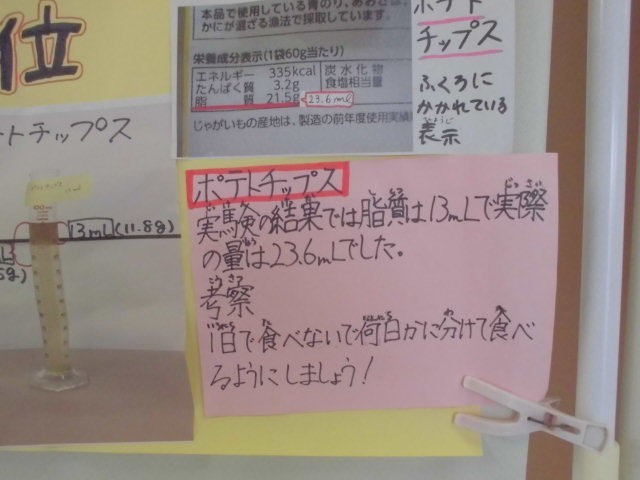 位
本品で使用している青のり、あおさは、
かにが混ざる漁法で採取しています。
栄養成分表示(1袋60g当たり)
エネルギー 335kcal 炭水化物
たんぱく質 3.2g 食塩相当量
脂質 21.5g 23.6mL
じゃがいもの産地は、製造の前年度使用実績
ポテト
チップス
ふくろに
かかれている
表示
トチップス
13mL(11.8g)
ポテトチップス
実験の結果では脂質は13mLで実際
の量は23.6mLでした。
考察
1日で食べないで何日かに分けて食べ
るようにしましょう!